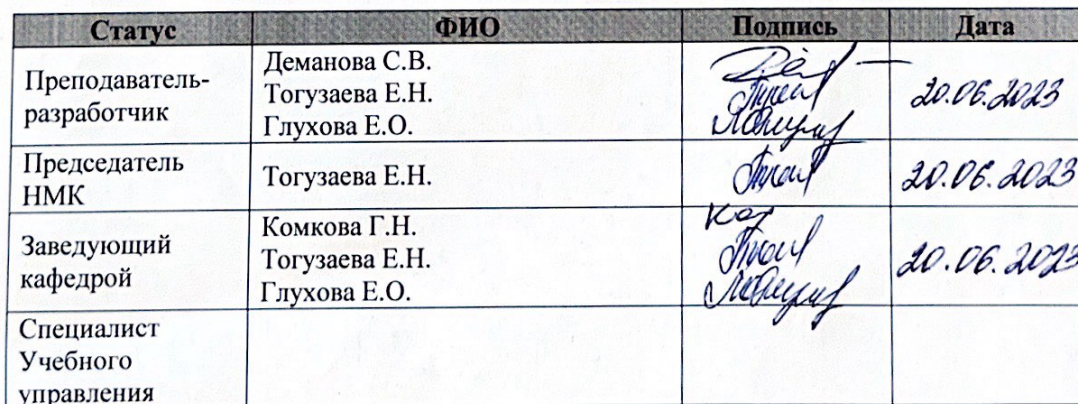 Статус ФИО Подпись Дата
Преподаватель-
разработчик
Деманова С.В.
Тогузаева Е.Н.
Глухова Е.О.
20.06.2023
Председатель
НМК
Тогузаева Е.Н.
20.06.2023
Заведующий
кафедрой
Комкова Г.Н.
Тогузаева Е.Н.
Глухова Е.О.
20.06.2023
Специалист
Учебного
управления